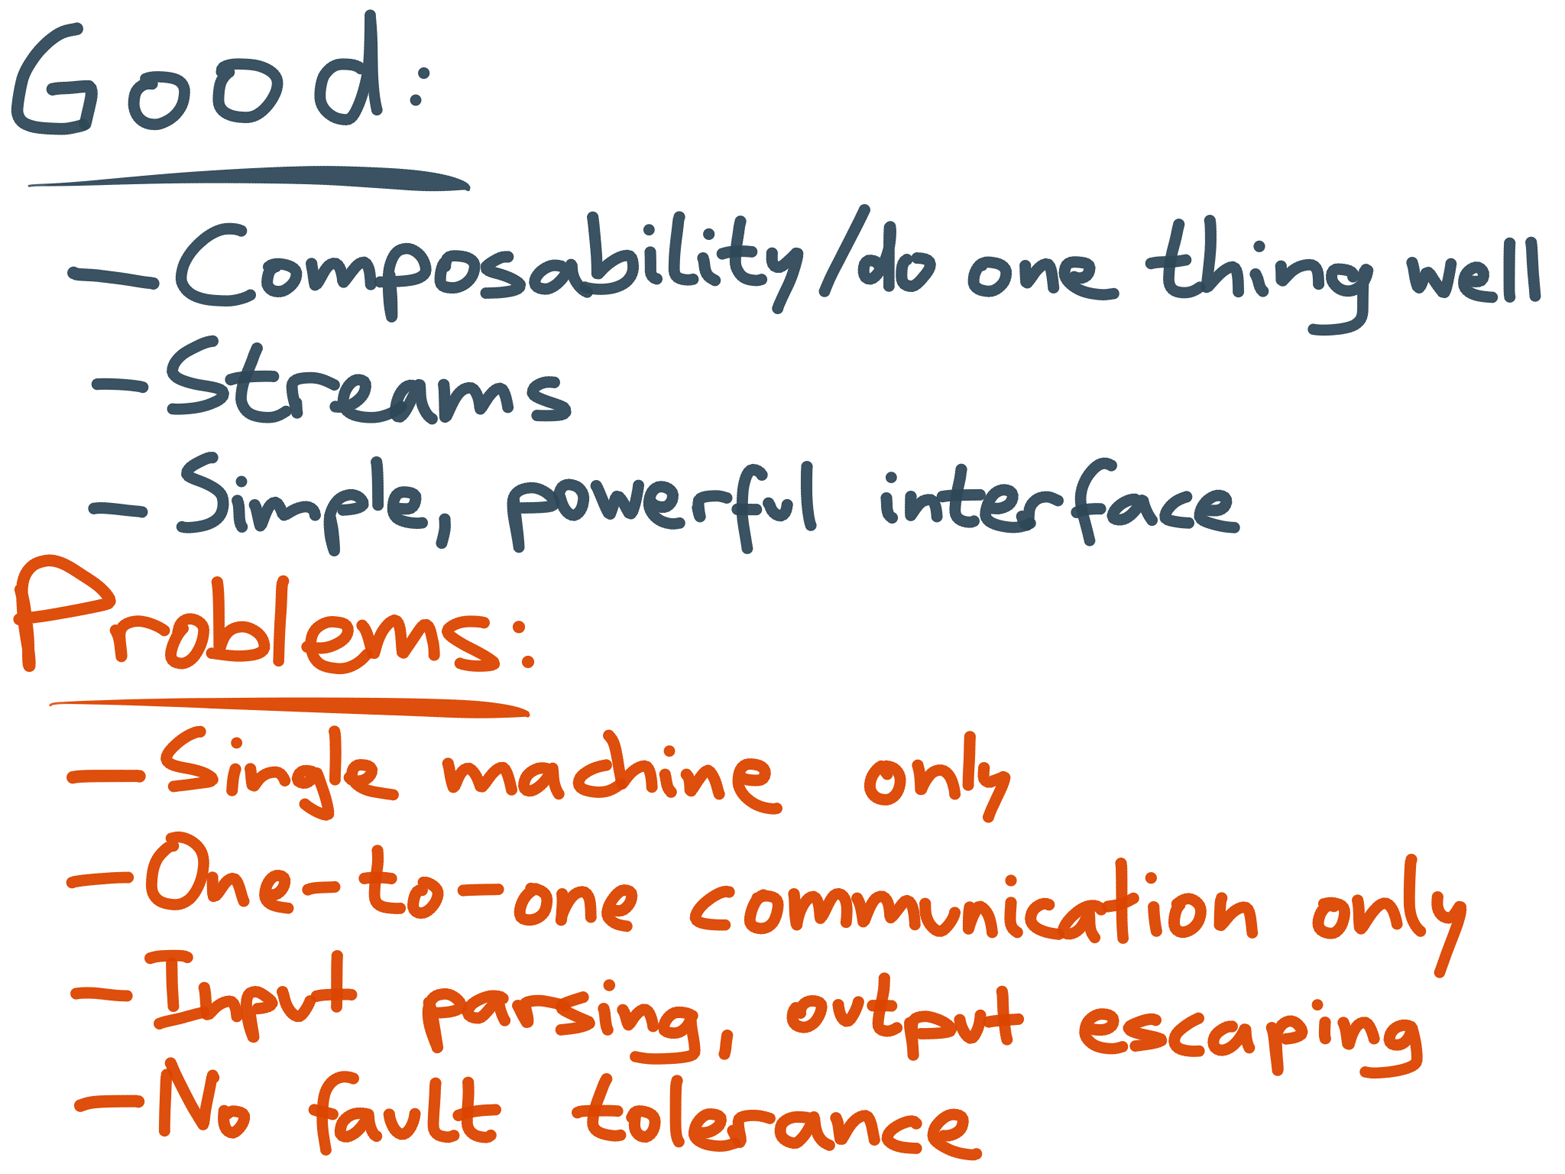 Good:
- Composability/do one thing well
- Streams
- Simple, powerful interface
Problems:
- Single machine only
- One-to-one communication only
- Input parsing, output escaping
- No fault tolerance